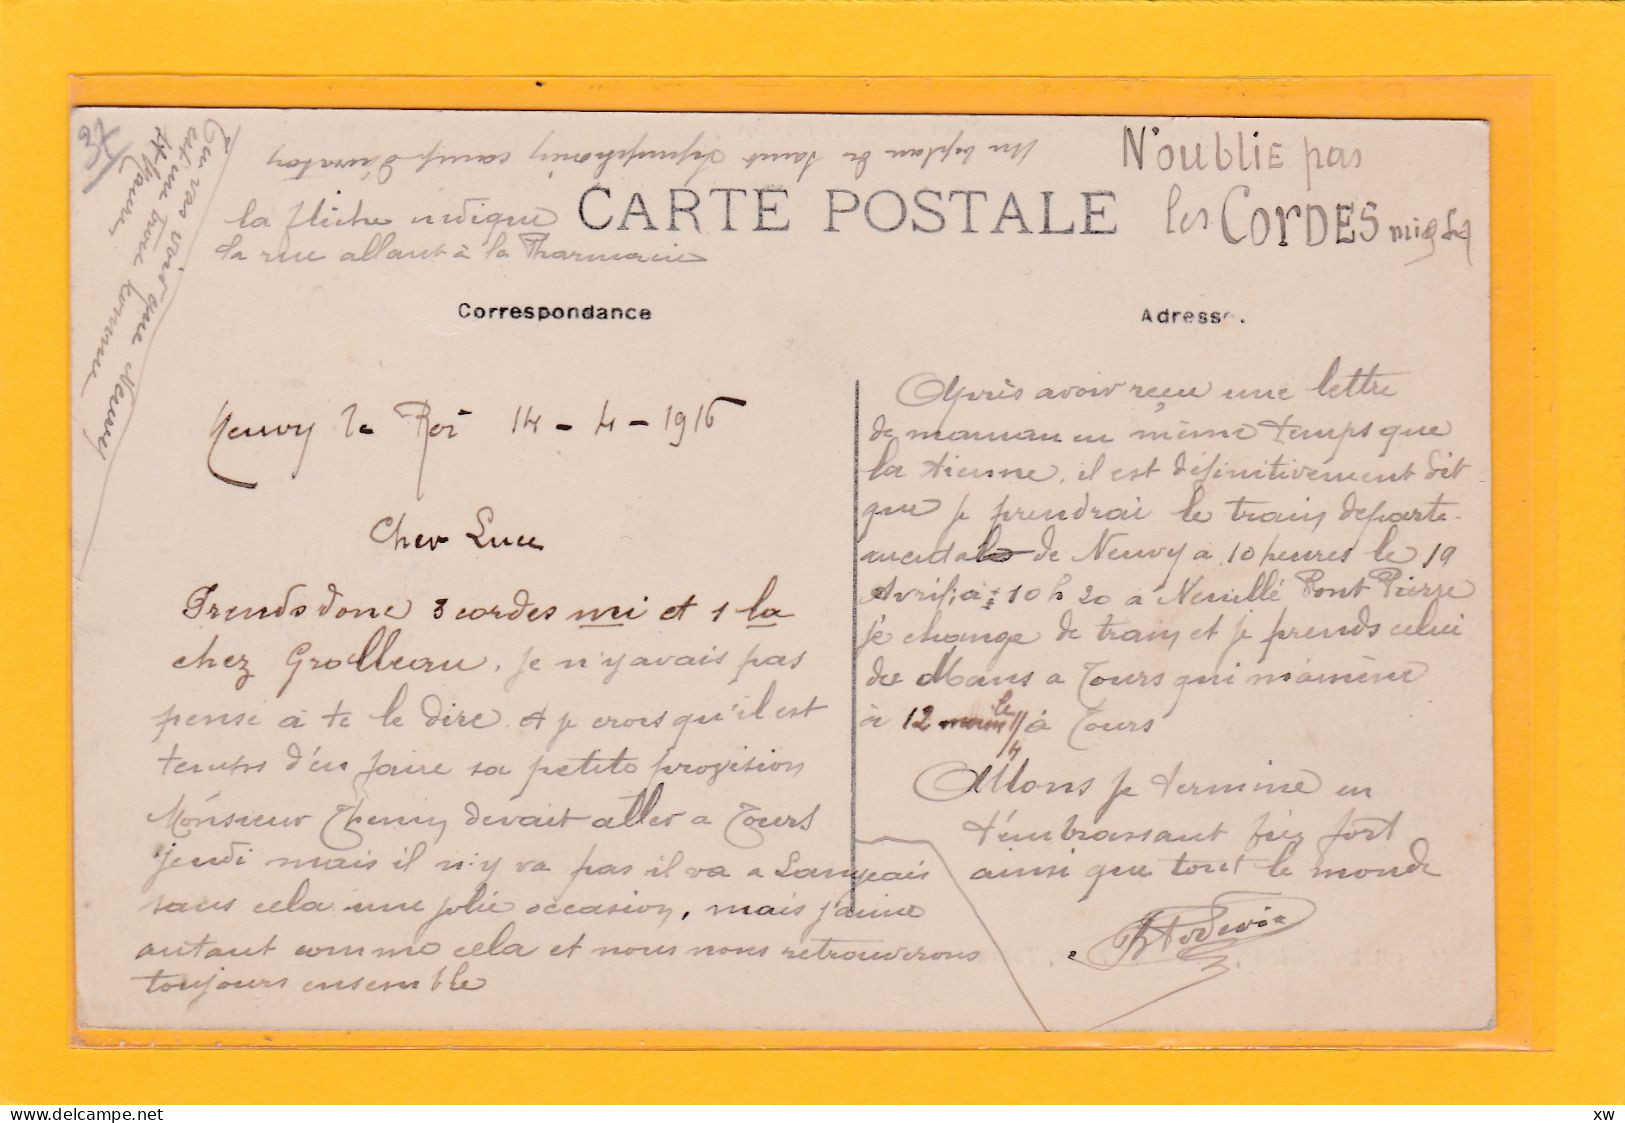 Un biplan de Saint Symphorien camp d'aviation
N'OUBLIE pas
les CORDES mi et la
la flèche indique
la rue allant à la Pharmacie
CARTE POSTALE
Tu vas voir que Neuvy
est une
Correspondance
Adresse.
Neuvy le Roi 14-4-1916
Cher Luce
Prends donc 3 cordes mi et 1 la
chez Grolleau, je n'y avais pas
pensé à te le dire et je crois qu'il est
temps d'en faire sa petite provision
Monsieur Themy devait aller a Tours
jeudi mais il n'y va pas il va a Langeais
sans cela une jolie occasion, mais j'aime
autant comme cela et nous nous retrouverons
toujours ensemble
Après avoir reçu une lettre
de maman en même temps que
la tienne, il est définitivement dit
que je prendrai le train departe-
mental de Neuvy a 10 heures le 19
Avril; à 10 h 20 a Neuillé Pont Pierre
je change de train et je prends celui
du Mans a Tours qui m'amène
à 12 le 11/4 à Tours
Allons je termine en
t'embrassant bien fort
ainsi que tout le monde
delcampe.net
xw